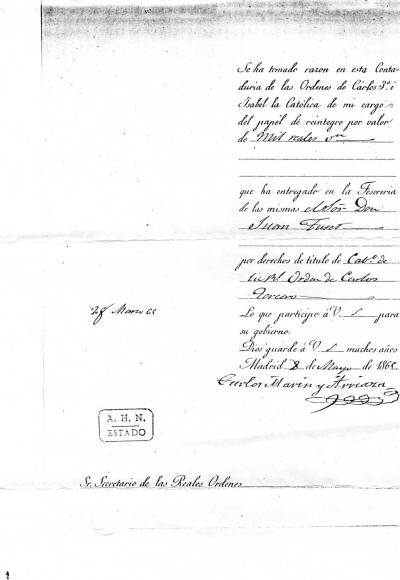 Se ha tomado razon en esta Conta-
duria de las Ordenes de Cárlos 3.º é
Isabel la Católica de mi cargo
del papel de reintegro por valor
de Mil reales vn
que ha entregado en la Tesoreria
de las mismas el Sor. Don
Juan Fuset
por derechos de titulo de Cabo. de
la Rl. Orden de Carlos
Tercero
Lo que participo á V. S para
su gobierno.
Dios guarde á V. S muchos años
Madrid 8 de Mayo de 186
Carlos Marin y Arriaza
28 Marzo
A. H. N.
ESTADO
Sr. Secretario de las Reales Ordenes